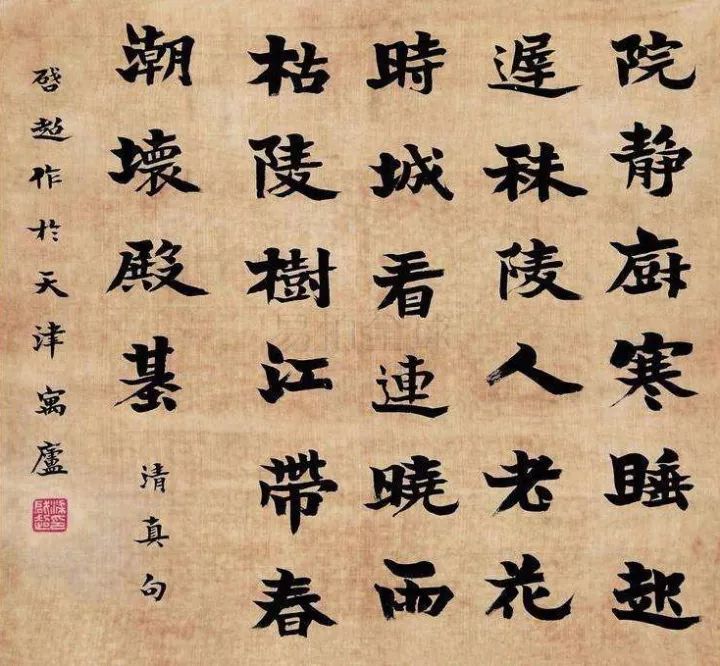 院靜廚寒睡起
遲秣陵人老花
時城看連曉雨
枯陵樹江帶春
潮壞殿基
清真句
啓超作於天津寓廬